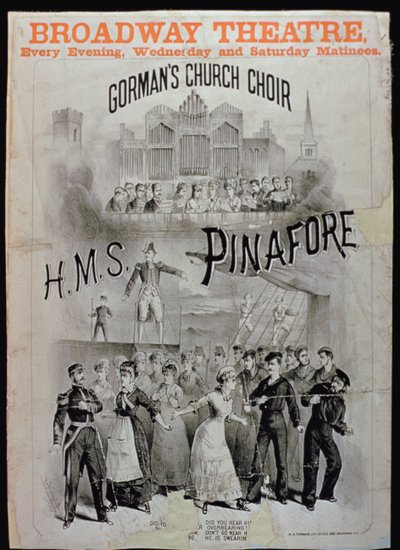 BROADWAY THEATRE,
Every Evening, Wednesday and Saturday Matinees.
GORMAN'S CHURCH CHOIR
H.M.S. PINAFORE
DO YO
DID YOU HEAR HI
R OVERBEARING
DON'T GO NEAR H
HE IS SWEARIN